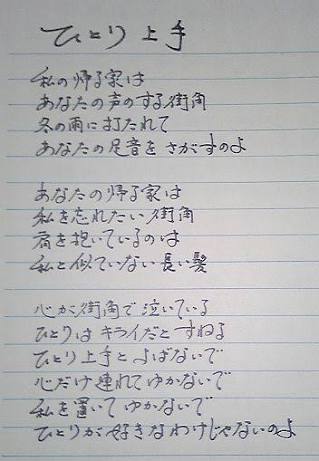 ひとり上手
私の帰る家は
あなたの声のする街角
冬の雨に打たれて
あなたの足音をさがすのよ
あなたの帰る家は
私を忘れたい街角
肩を抱いているのは
私と似ていない長い髪
心が街角で泣いている
ひとりはキライだとすねる
ひとり上手とよばないで
心だけ連れてゆかないで
私を置いてゆかないで
ひとりが好きなわけじゃないのよ